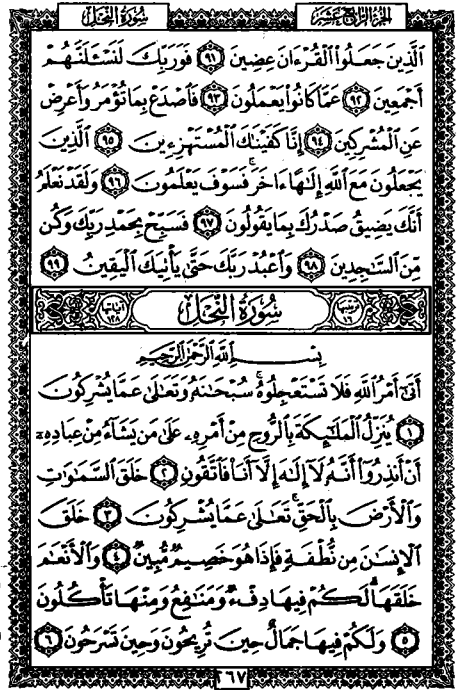 الجزء الرابع عشر
سورة النحل
الَّذِينَ جَعَلُوا الْقُرْءَانَ عِضِينَ ٩١ فَوَرَبِّكَ لَنَسْـَٔلَنَّهُمْ
أَجْمَعِينَ ٩٢ عَمَّا كَانُوا يَعْمَلُونَ ٩٣ فَاصْدَعْ بِمَا تُؤْمَرُ وَأَعْرِضْ
عَنِ الْمُشْرِكِينَ ٩٤ إِنَّا كَفَيْنَاكَ الْمُسْتَهْزِءِينَ ٩٥ الَّذِينَ
يَجْعَلُونَ مَعَ اللَّهِ إِلَٰهًا ءَاخَرَ فَسَوْفَ يَعْلَمُونَ ٩٦ وَلَقَدْ نَعْلَمُ
أَنَّكَ يَضِيقُ صَدْرُكَ بِمَا يَقُولُونَ ٩٧ فَسَبِّحْ بِحَمْدِ رَبِّكَ وَكُن
مِّنَ السَّاجِدِينَ ٩٨ وَاعْبُدْ رَبَّكَ حَتَّىٰ يَأْتِيَكَ الْيَقِينُ ٩٩
ترتيبها ١٦ سُورَةُ النَّحْلِ آياتها ١٢٨
بِسْمِ اللَّهِ الرَّحْمَٰنِ الرَّحِيمِ
أَتَىٰٓ أَمْرُ اللَّهِ فَلَا تَسْتَعْجِلُوهُ ۚ سُبْحَانَهُ وَتَعَالَىٰ عَمَّا يُشْرِكُونَ
١ يُنَزِّلُ الْمَلَٰٓئِكَةَ بِالرُّوحِ مِنْ أَمْرِهِ عَلَىٰ مَن يَشَآءُ مِنْ عِبَادِهِ
أَنْ أَنذِرُوٓا أَنَّهُ لَآ إِلَٰهَ إِلَّآ أَنَا فَاتَّقُونِ ٢ خَلَقَ السَّمَاوَاتِ
وَالْأَرْضَ بِالْحَقِّ ۚ تَعَالَىٰ عَمَّا يُشْرِكُونَ ٣ خَلَقَ
الْإِنسَانَ مِن نُّطْفَةٍ فَإِذَا هُوَ خَصِيمٌ مُّبِينٌ ٤ وَالْأَنْعَامَ
خَلَقَهَا ۗ لَكُمْ فِيهَا دِفْءٌ وَمَنَافِعُ وَمِنْهَا تَأْكُلُونَ
٥ وَلَكُمْ فِيهَا جَمَالٌ حِينَ تُرِيحُونَ وَحِينَ تَسْرَحُونَ ٦
٢٦٧